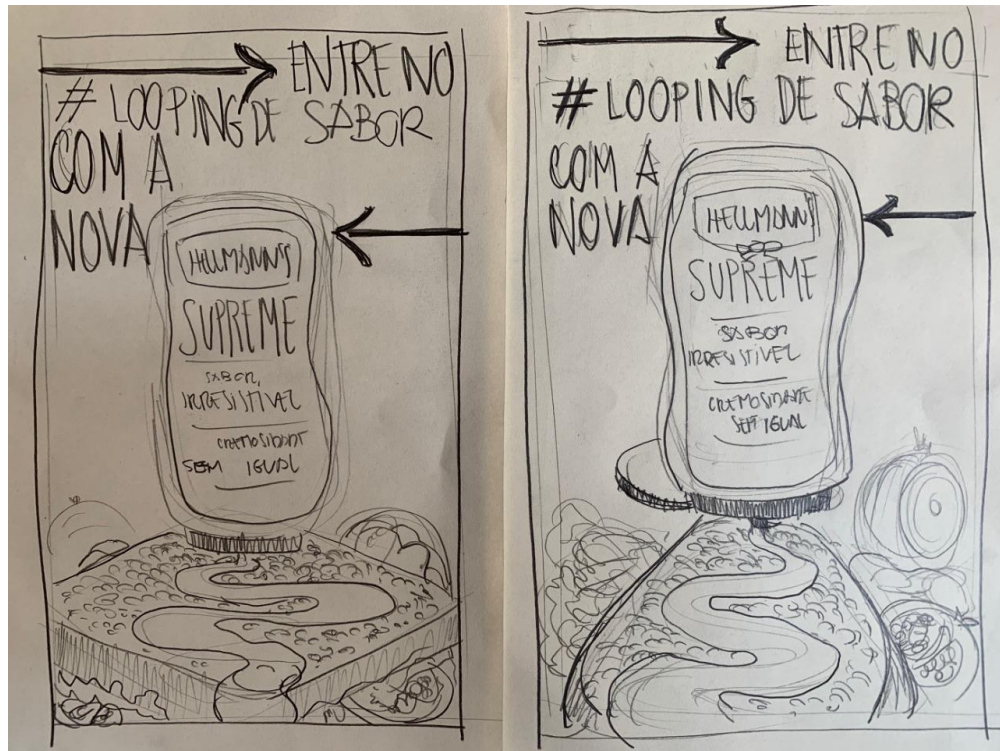 ENTRE NO
# LOOPING DE SABOR
COM A
NOVA
HELLMANN'S
SUPREME
SABOR
IRRESISTIVEL
CREMOSIDADE
SEM IGUAL
ENTRE NO
# LOOPING DE SABOR
COM A
NOVA
HELLMANN'S
SUPREME
SABOR
IRRESISTIVEL
CREMOSIDADE
SEM IGUAL